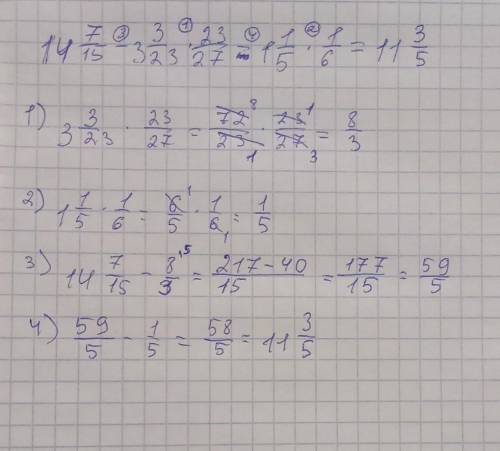 14 7/15 -③ 3 3/23 ·① 23/27 -④ 1 1/5 ·② 1/6 = 11 3/5
1) 3 3/23 · 23/27 = 72⁸/23₁ · 23¹/27₃ = 8/3
2) 1 1/5 · 1/6 = 6¹/5 · 1/6₁ = 1/5
3) 14 7/15 - 8/3 ¹⁵ = 217-40/15 = 177/15 = 59/5
4) 59/5 - 1/5 = 58/5 = 11 3/5